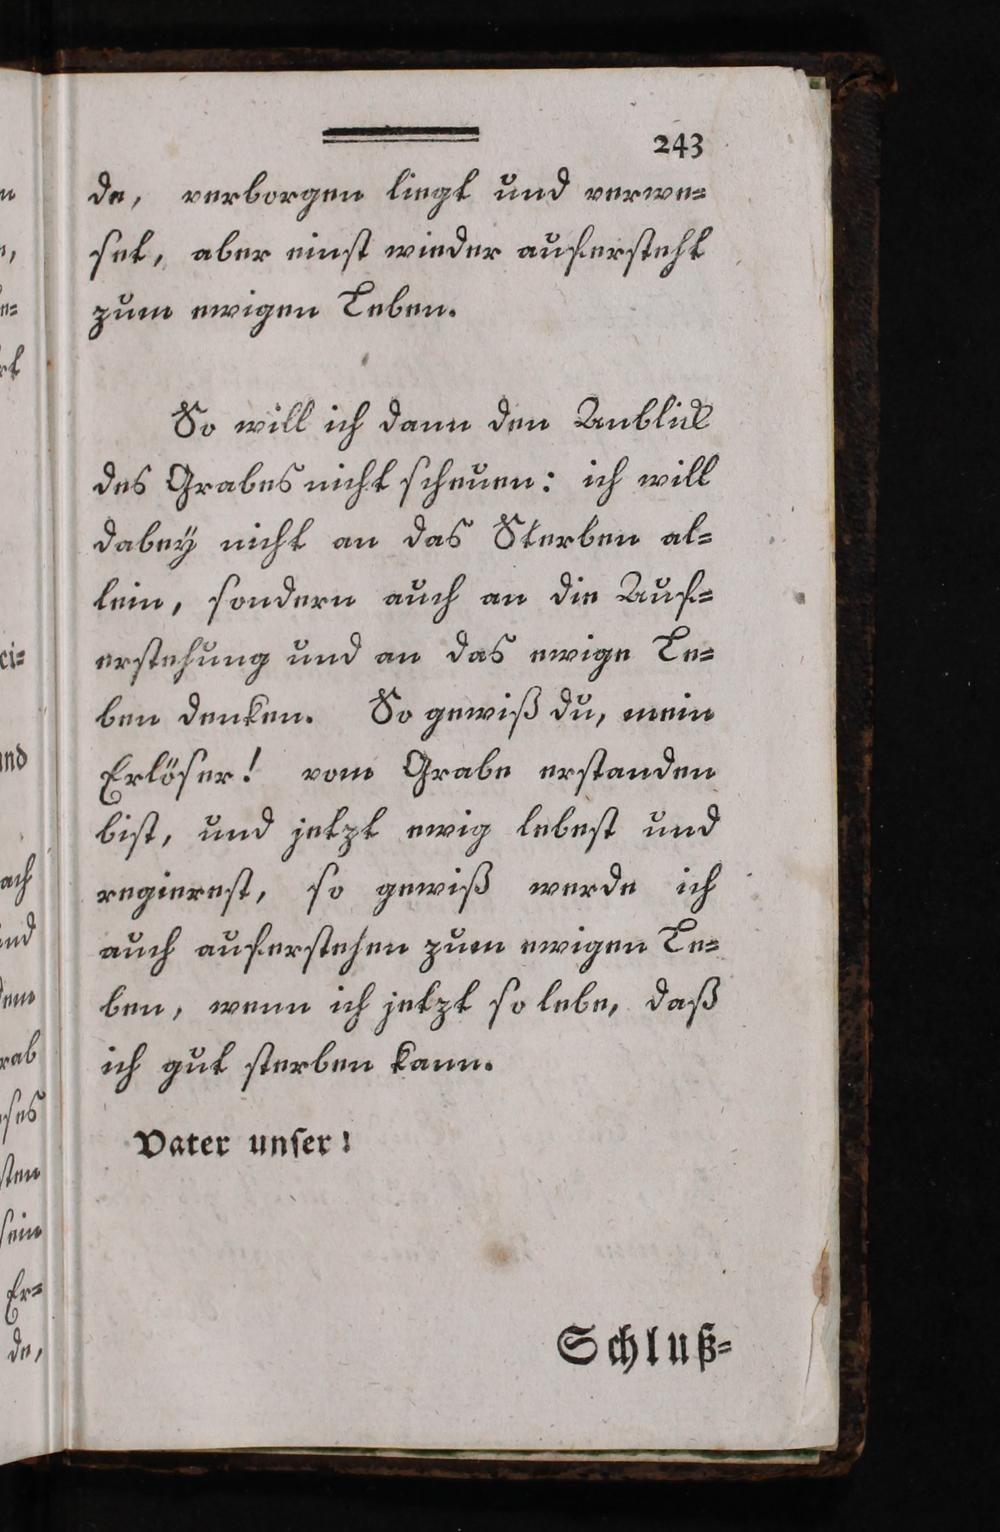 243
de, verborgen liegt und verwe=
set, aber einst wieder aufersteht
zum ewigen Leben.
So will ich dann den Anblick
des Grabes nicht scheuen: ich will
dabey nicht an das Sterben al=
lein, sondern auch an die Auf=
erstehung und an das ewige Le=
ben denken. So gewiß du, mein
Erlöser! vom Grabe erstanden
bist, und jetzt ewig lebest und
regierest, so gewiß werde ich
auch auferstehen zum ewigen Le=
ben, wenn ich jetzt so lebe, daß
ich gut sterben kann.
Vater unser!
Schluß=